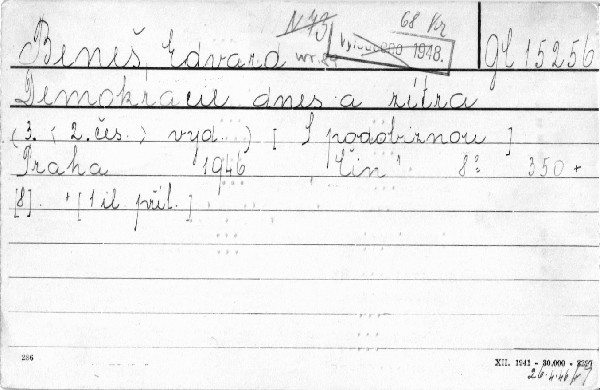 N 73 68 Kr
Beneš, Edvard Vyloučeno 1948. gE 15256
Demokracie dnes a zítra
(3. < 2. čes. > vyd. ) [ S podobiznou ]
Praha 1946 "Čin" 8° 350 +
[8]. + [ 1 il. příl. ]
286 XII. 1941 - 30.000 - 3297
26.4.46